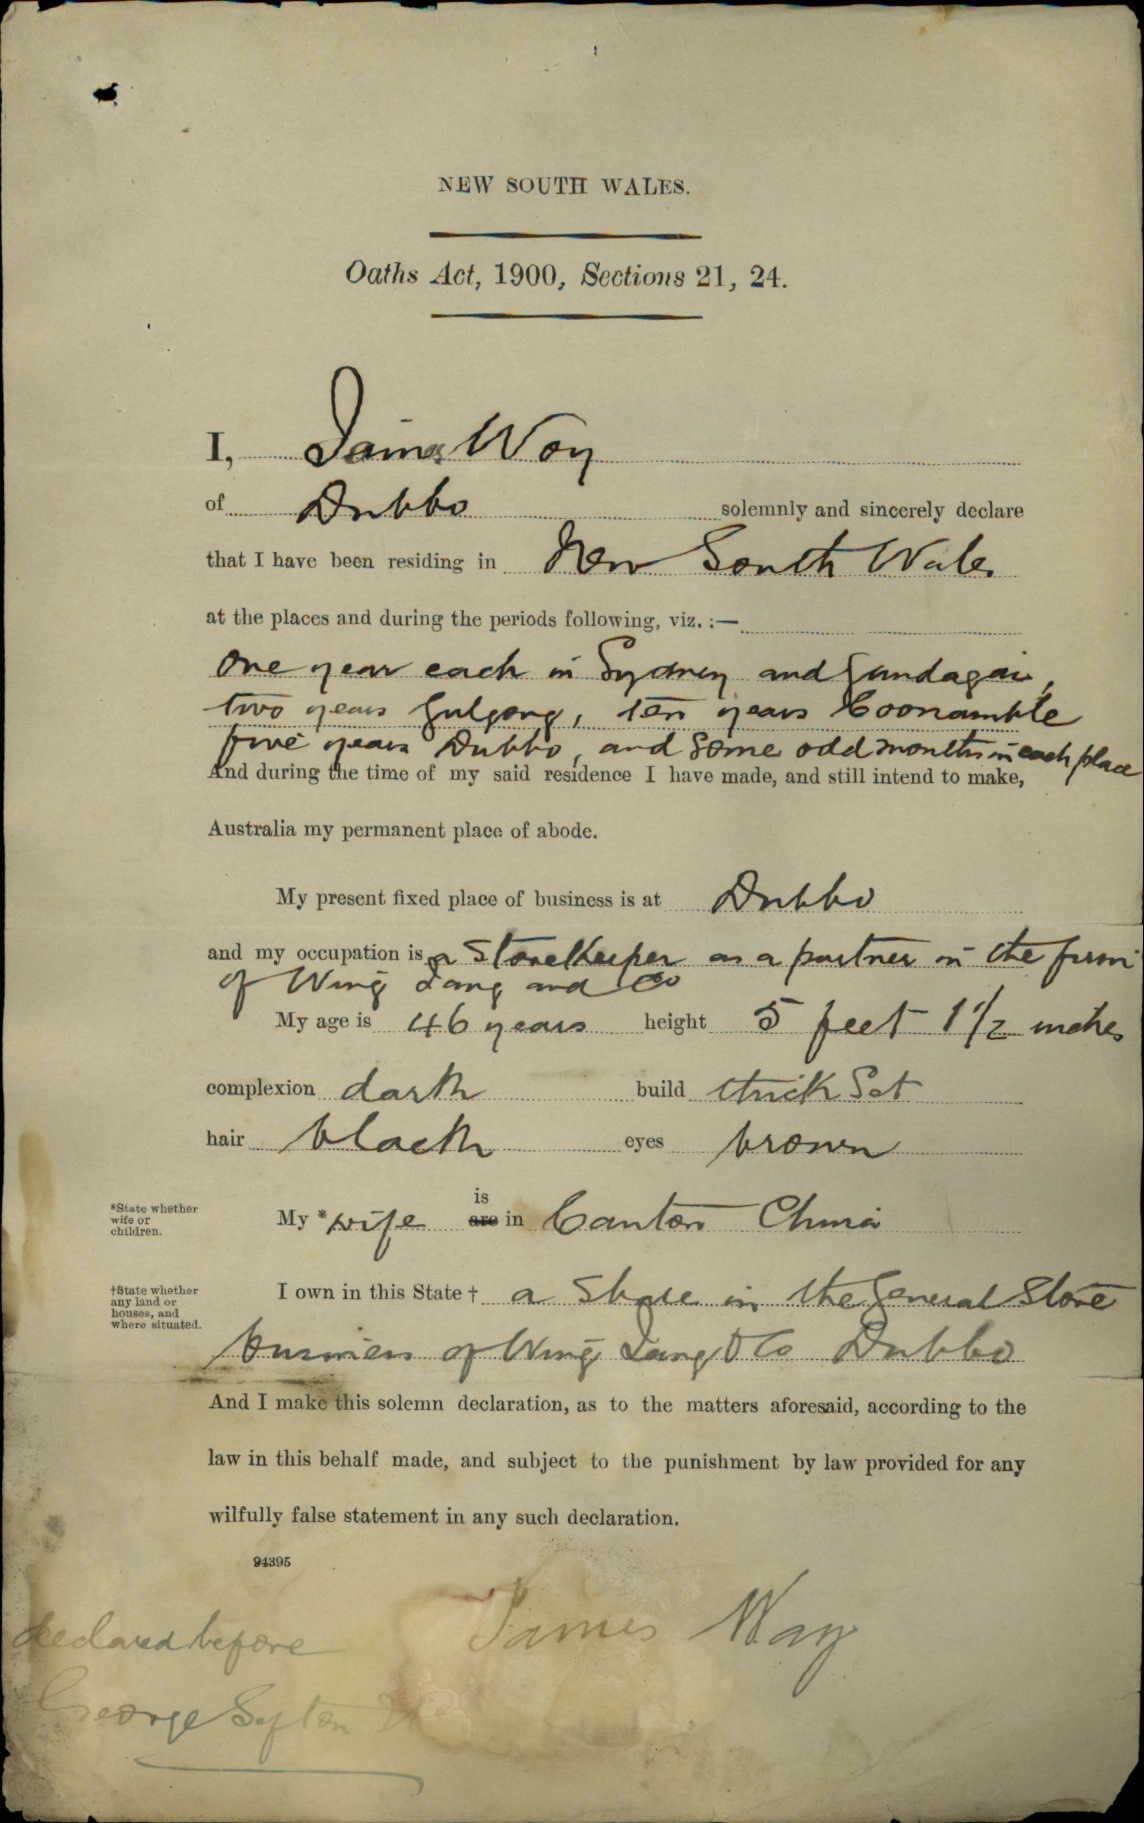 NEW SOUTH WALES.
Oaths Act, 1900, Sections 21, 24.
I, James Way
of Dubbo solemnly and sincerely declare
that I have been residing in New South Wales
at the places and during the periods following, viz. :—
One year each in Sydney and Gundagai,
two years Gulgong, ten years Coonamble
five years Dubbo, and some odd months in each place
And during the time of my said residence I have made, and still intend to make,
Australia my permanent place of abode.
My present fixed place of business is at Dubbo
and my occupation is a Storekeeper as a partner in the firm
of Wing Lang and Co
My age is 46 years height 5 feet 1 1/2 inches
complexion dark build thick Set
hair black eyes brown
is
*State whether wife or children.
My * wife are in Canton China
†State whether any land or houses, and where situated.
I own in this State † a Share in the General Store
business of Wing Lang & Co Dubbo
And I make this solemn declaration, as to the matters aforesaid, according to the
law in this behalf made, and subject to the punishment by law provided for any
wilfully false statement in any such declaration.
94395
declared before
James Way
George Sefton